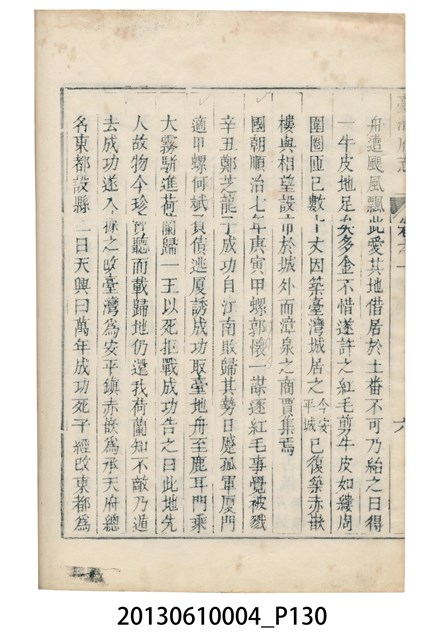 舟遭颶風飄此愛其地借居於土番不可乃紿之曰得
一牛皮地足矣多金不惜遂許之紅毛剪牛皮如縷周
圍圈匝已數十丈因築臺灣城居之今安平城已復築赤嵌
樓與相望設市於城外而漳泉之商賈集焉
國朝順治七年庚寅甲螺郭懷一謀逐紅毛事覺被戮
辛丑鄭芝龍子成功自江南敗歸其勢日蹙孤軍厦門
適甲螺何斌負債逃厦誘成功取臺地舟至鹿耳門乘
大霧駢進荷蘭歸一王以死拒戰成功告之曰此地先
人故物今珍寶聽而載歸地仍還我荷蘭知不敵乃遁
去成功遂入據之改臺灣為安平鎮赤嵌為承天府總
名東都設縣二曰天興曰萬年成功死子經改東都為
20130610004_P130